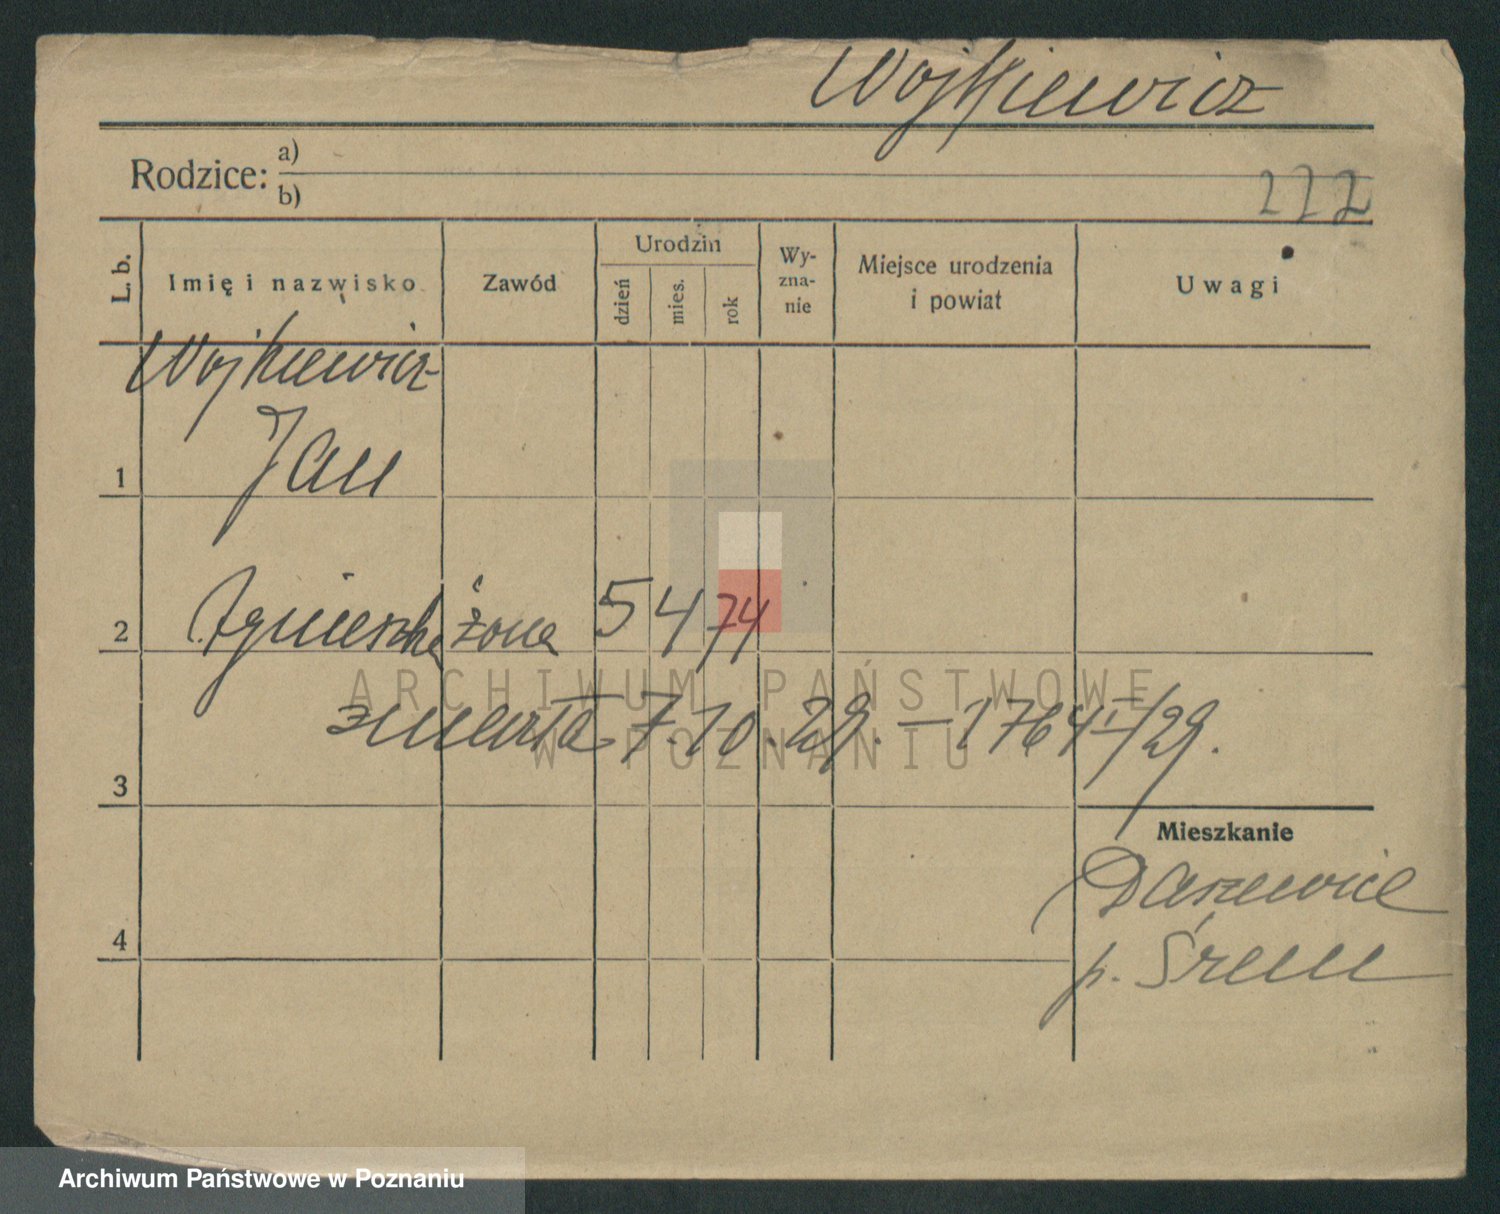 Wojkiewicz
Rodzice: a)
b)
222
L. b.
Imię i nazwisko
Zawód
Urodzin
dzień
mies.
rok
Wy-
zna-
nie
Miejsce urodzenia
i powiat
Uwagi
Wojkiewicz
1 Jan
2 Agnieszka żona 5 4 74
ARCHIWUM PAŃSTWOWE
W POZNANIU
zmarła 7.10.29. – 1764 I/29.
3
Mieszkanie
Daszewice
4
p. Śrem
Archiwum Państwowe w Poznaniu